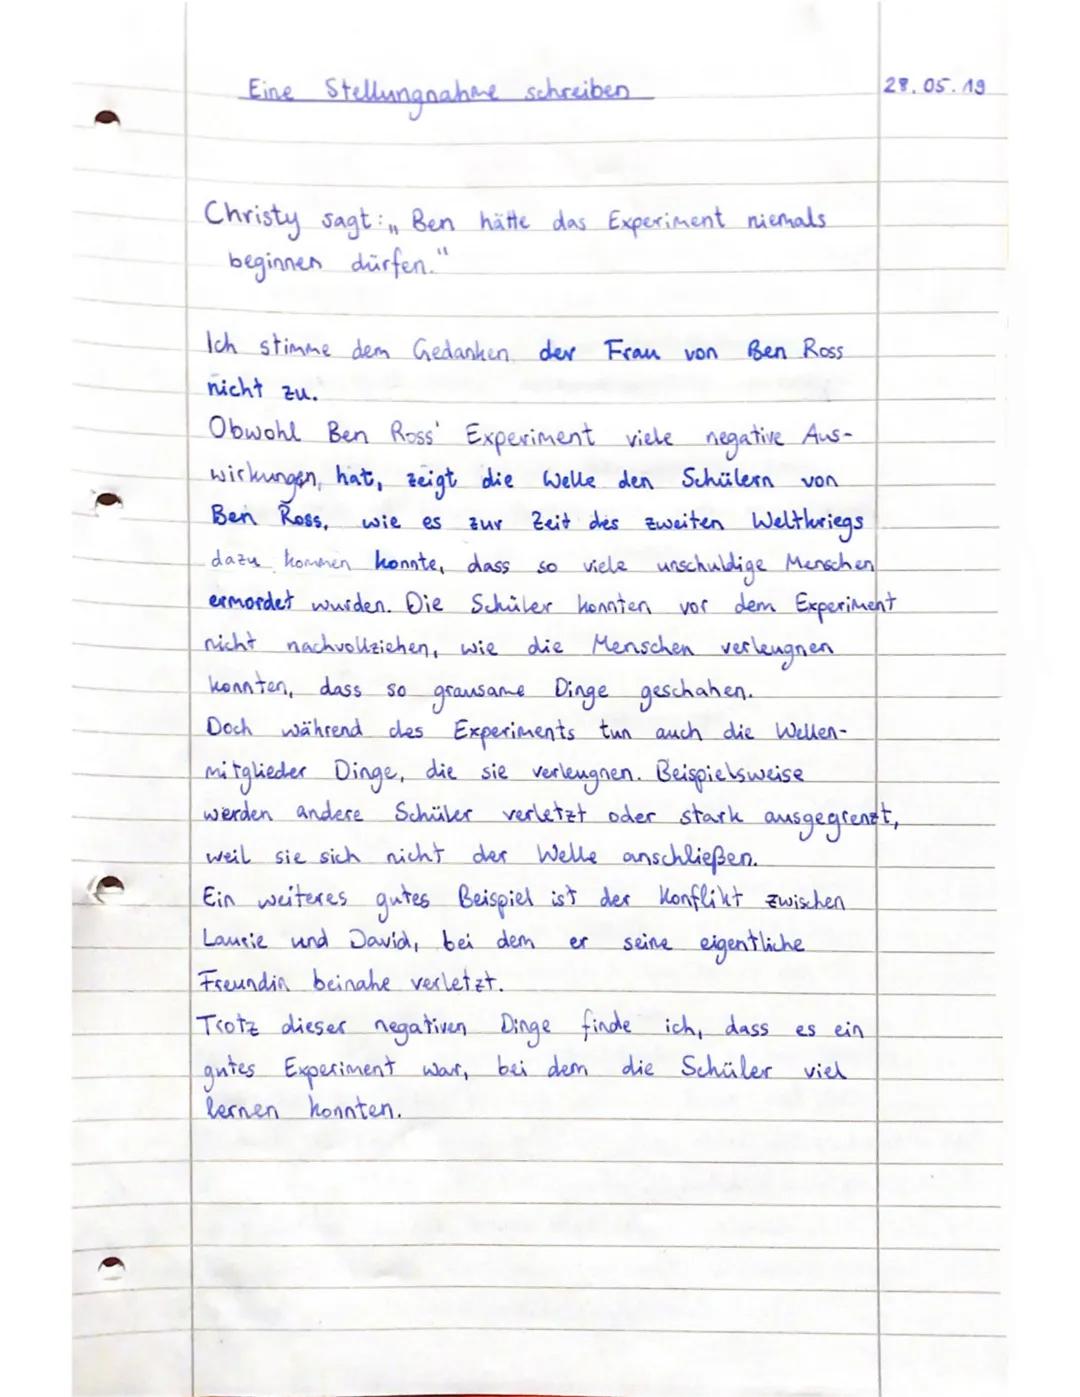 Eine Stellungnahme schreiben
28.05.19
Christy sagt: „Ben hätte das Experiment niemals
beginnen dürfen."
Ich stimme dem Gedanken der Frau von Ben Ross
nicht zu.
Obwohl Ben Ross' Experiment viele negative Aus-
wirkungen, hat, zeigt die Welle den Schülern von
Ben Ross, wie es zur Zeit des zweiten Weltkriegs
dazu kommen konnte, dass so viele unschuldige Menschen
ermordet wurden. Die Schüler konnten vor dem Experiment
nicht nachvollziehen, wie die Menschen verleugnen
konnten, dass so grausame Dinge geschahen.
Doch während des Experiments tun auch die Wellen-
mitglieder Dinge, die sie verleugnen. Beispielsweise
werden andere Schüler verletzt oder stark ausgegrenzt,
weil sie sich nicht der Welle anschließen.
Ein weiteres gutes Beispiel ist der Konflikt zwischen
Laurie und David, bei dem er seine eigentliche
Freundin beinahe verletzt.
Trotz dieser negativen Dinge finde ich, dass es ein
gutes Experiment war, bei dem die Schüler viel
lernen konnten.